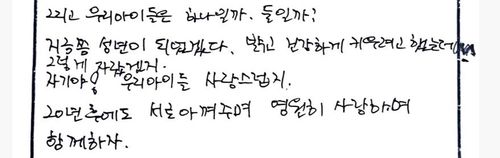 그리고 우리아이들은 하나일까. 둘일까?
지금쯤 성년이 되었겠다. 밝고 건강하게 키우려고 했는데
그렇게 자랐겠지.
자기야 우리아이들 사랑스럽지.
20년후에도 서로아껴주며 영원히 사랑하며
함께하자.